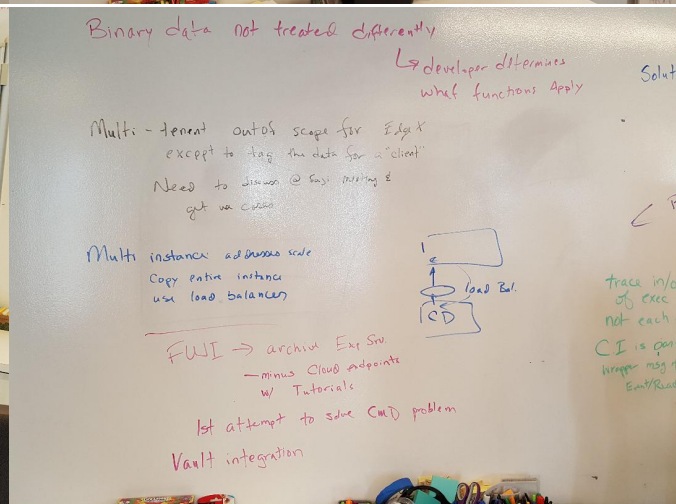 Binary data not treated differently
↳ developer determines
what functions Apply
Solut
Multi-tenent out of scope for EdgeX
except to tag the data for a "client"
Need to discuss @ Fuji meeting &
get use cases
Multi instance addresses scale
Copy entire instance
use load balancers
load Bal.
CD
FUJI → archive Exp Srv.
- minus Cloud endpoints
w/ Tutorials
1st attempt to solve CMD problem
Vault integration
trace in/o
of exec
not each
CI is pan
Wrapper msg
Event/Read